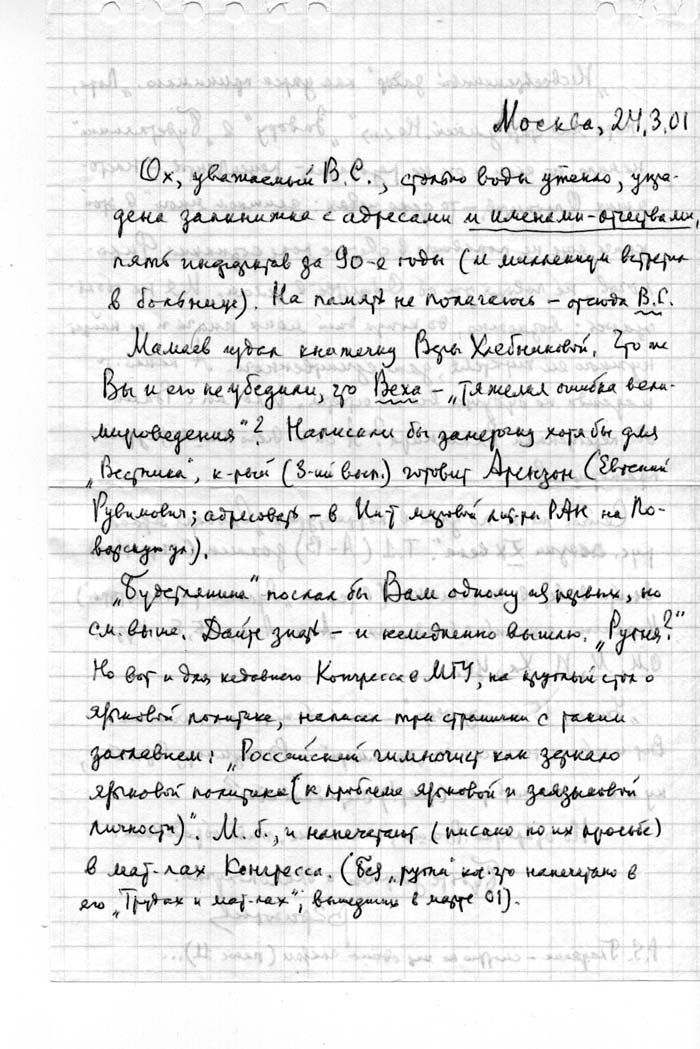 Москва, 24.3.01
Ох, уважаемый В.С., столько воды утекло, укра-
дена запкнижка с адресами и именами-отчествами,
пять инфарктов за 90-е годы (и миллениум встретил
в больнице). На память не полагаюсь – отсюда В.С.
Мамаев издал книжечку Веры Хлебниковой. Что же
Вы и его не убедили, что Веха – „тяжелая ошибка вели-
мироведения"? Написали бы заметочку хотя бы для
„Вестника", к-рый (3-ий вып.) готовит Арензон (Евгений
Рувимович; адресовать – в Ин-т мировой лит-ры РАН на По-
варскую ул.).
„Будетлянина" послал бы Вам одному из первых, но
см. выше. Дайте знать – и немедленно вышлю. „Ругня?"
Но вот и для недавнего Конгресса в МГУ, на круглый стол о
языковой политике, написал три странички с таким
заглавием: „Российский гимночист как зеркало
языковой политики (к проблеме языковой и заязыковой
личности)". М.б., и напечатают (писано по их просьбе)
в мат-лах Конгресса. (Без „ругни" кое-что напечатано в
его „Трудах и мат-лах", вышедших в марте 01).